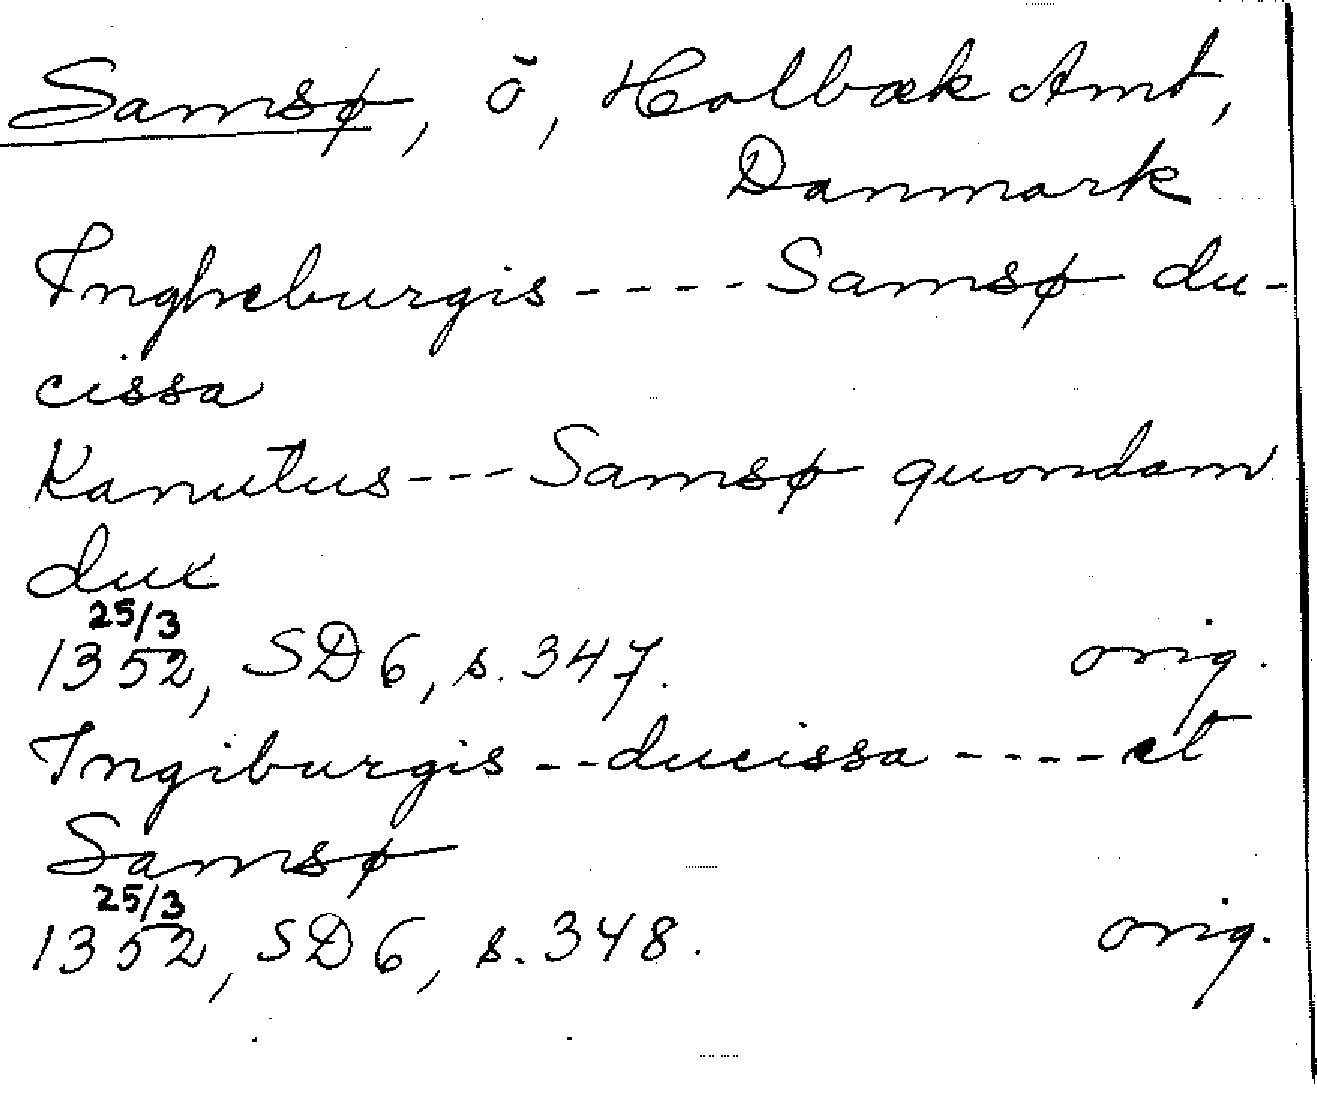 Samsø, ö, Holbæk Amt,
Danmark
Ingheburgis ---- Samsø du-
cissa
Kanutus --- Samsø quondam
dux
25/3
1352, SD 6, s. 347. orig.
Ingiburgis -- ducissa ---- et
Samsø
25/3
1352, SD 6, s. 348. orig.